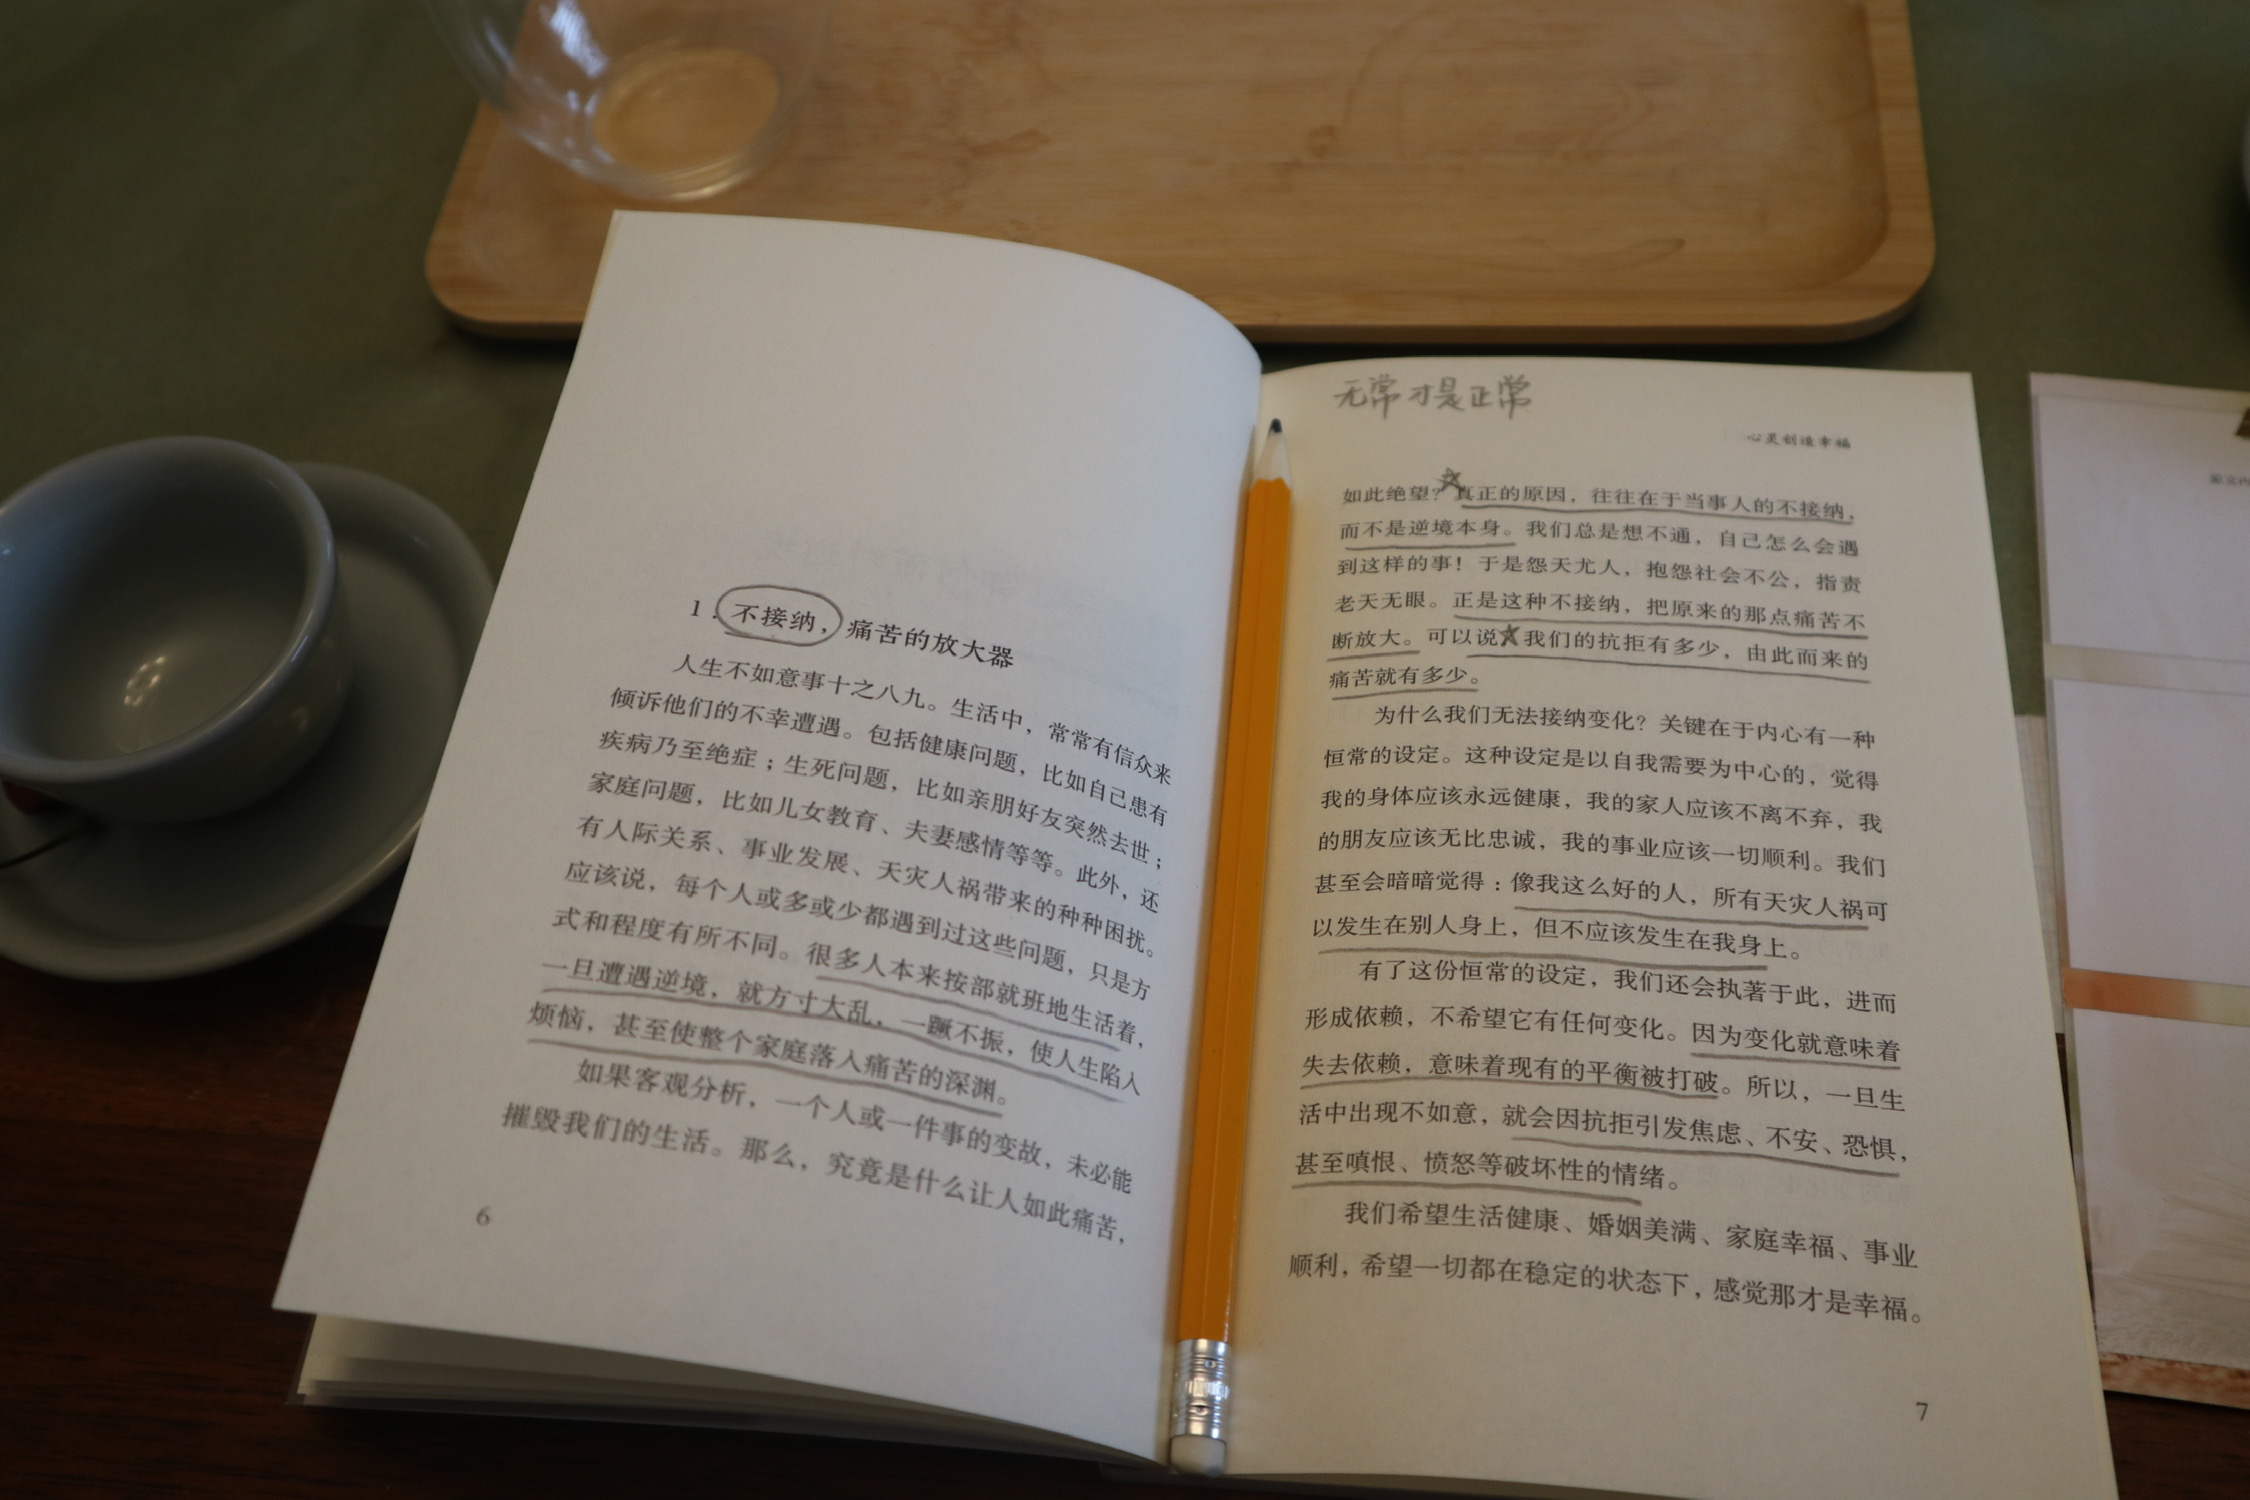 1．不接纳，痛苦的放大器
人生不如意事十之八九。生活中，常常有信众来
倾诉他们的不幸遭遇。包括健康问题，比如自己患有
疾病乃至绝症；生死问题，比如亲朋好友突然去世；
家庭问题，比如儿女教育、夫妻感情等等。此外，还
有人际关系、事业发展、天灾人祸带来的种种困扰。
应该说，每个人或多或少都遇到过这些问题，只是方
式和程度有所不同。很多人本来按部就班地生活着，
一旦遭遇逆境，就方寸大乱，一蹶不振，使人生陷入
烦恼，甚至使整个家庭落入痛苦的深渊。
如果客观分析，一个人或一件事的变故，未必能
摧毁我们的生活。那么，究竟是什么让人如此痛苦，
6
无常才是正常
心灵创造幸福
如此绝望？真正的原因，往往在于当事人的不接纳，
而不是逆境本身。我们总是想不通，自己怎么会遇
到这样的事！于是怨天尤人，抱怨社会不公，指责
老天无眼。正是这种不接纳，把原来的那点痛苦不
断放大。可以说，我们的抗拒有多少，由此而来的
痛苦就有多少。
为什么我们无法接纳变化？关键在于内心有一种
恒常的设定。这种设定是以自我需要为中心的，觉得
我的身体应该永远健康，我的家人应该不离不弃，我
的朋友应该无比忠诚，我的事业应该一切顺利。我们
甚至会暗暗觉得：像我这么好的人，所有天灾人祸可
以发生在别人身上，但不应该发生在我身上。
有了这份恒常的设定，我们还会执著于此，进而
形成依赖，不希望它有任何变化。因为变化就意味着
失去依赖，意味着现有的平衡被打破。所以，一旦生
活中出现不如意，就会因抗拒引发焦虑、不安、恐惧，
甚至嗔恨、愤怒等破坏性的情绪。
我们希望生活健康、婚姻美满、家庭幸福、事业
顺利，希望一切都在稳定的状态下，感觉那才是幸福。
7